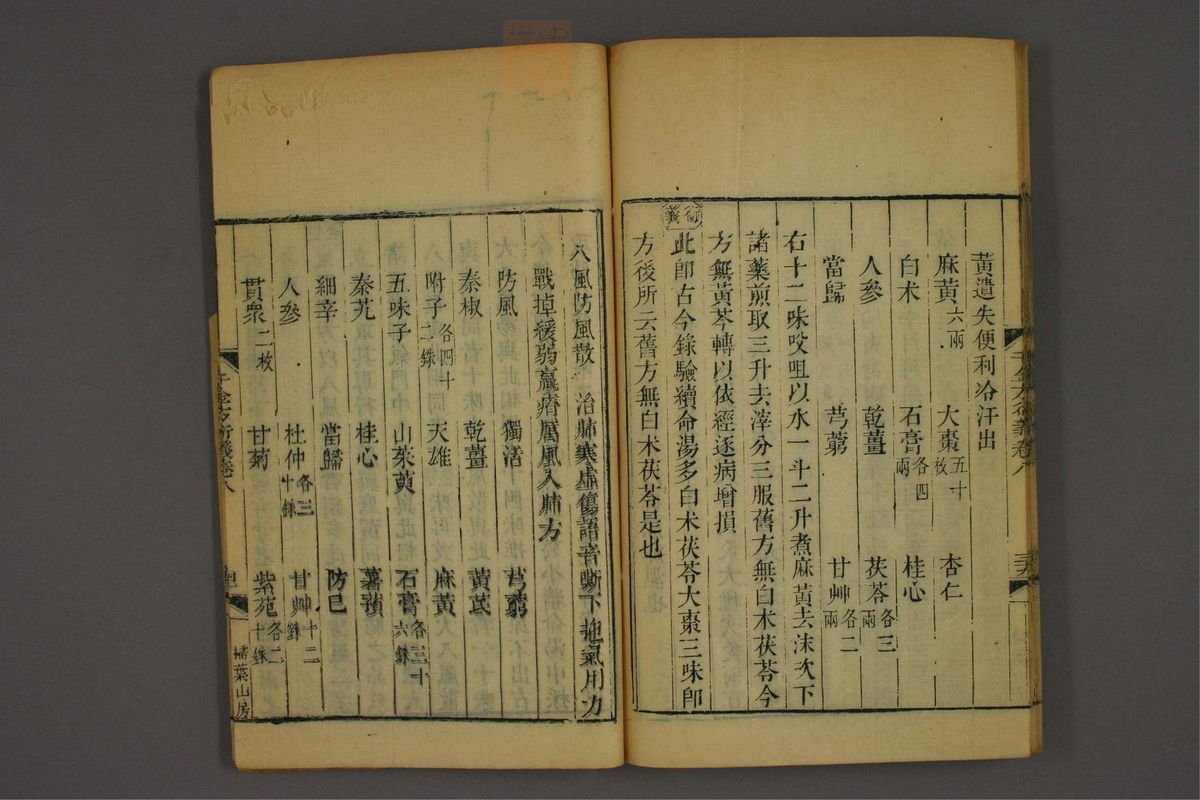 黃遺失便利冷汗出
麻黃六兩 大棗五十枚 杏仁
白朮 石膏各四兩 桂心
人參 乾薑 茯苓各三兩
當歸 芎藭 甘艸各二兩
右十二味㕮咀以水一斗二升煮麻黃去沫次下
諸藥煎取三升去滓分三服舊方無白朮茯苓今
方無黃芩轉以依經逐病增損
衍義
此卽古今錄驗續命湯多白朮茯苓大棗三味卽
方後所云舊方無白朮茯苓是也
千金方衍義卷八
八風防風散 治肺寒虛傷語音嘶下拖氣用力
戰掉緩弱羸瘠厲風入肺方
防風 獨活 芎藭
秦椒 乾薑 黃芪
附子各四十二銖 天雄 麻黃
五味子 山茱萸 石膏各三十六銖
秦艽 桂心 薯蕷
細辛 當歸 防巳
人參 杜仲各三十銖 甘艸十二銖
貫衆二枚 甘菊 紫苑各二十銖
千金方衍義卷八
掃葉山房